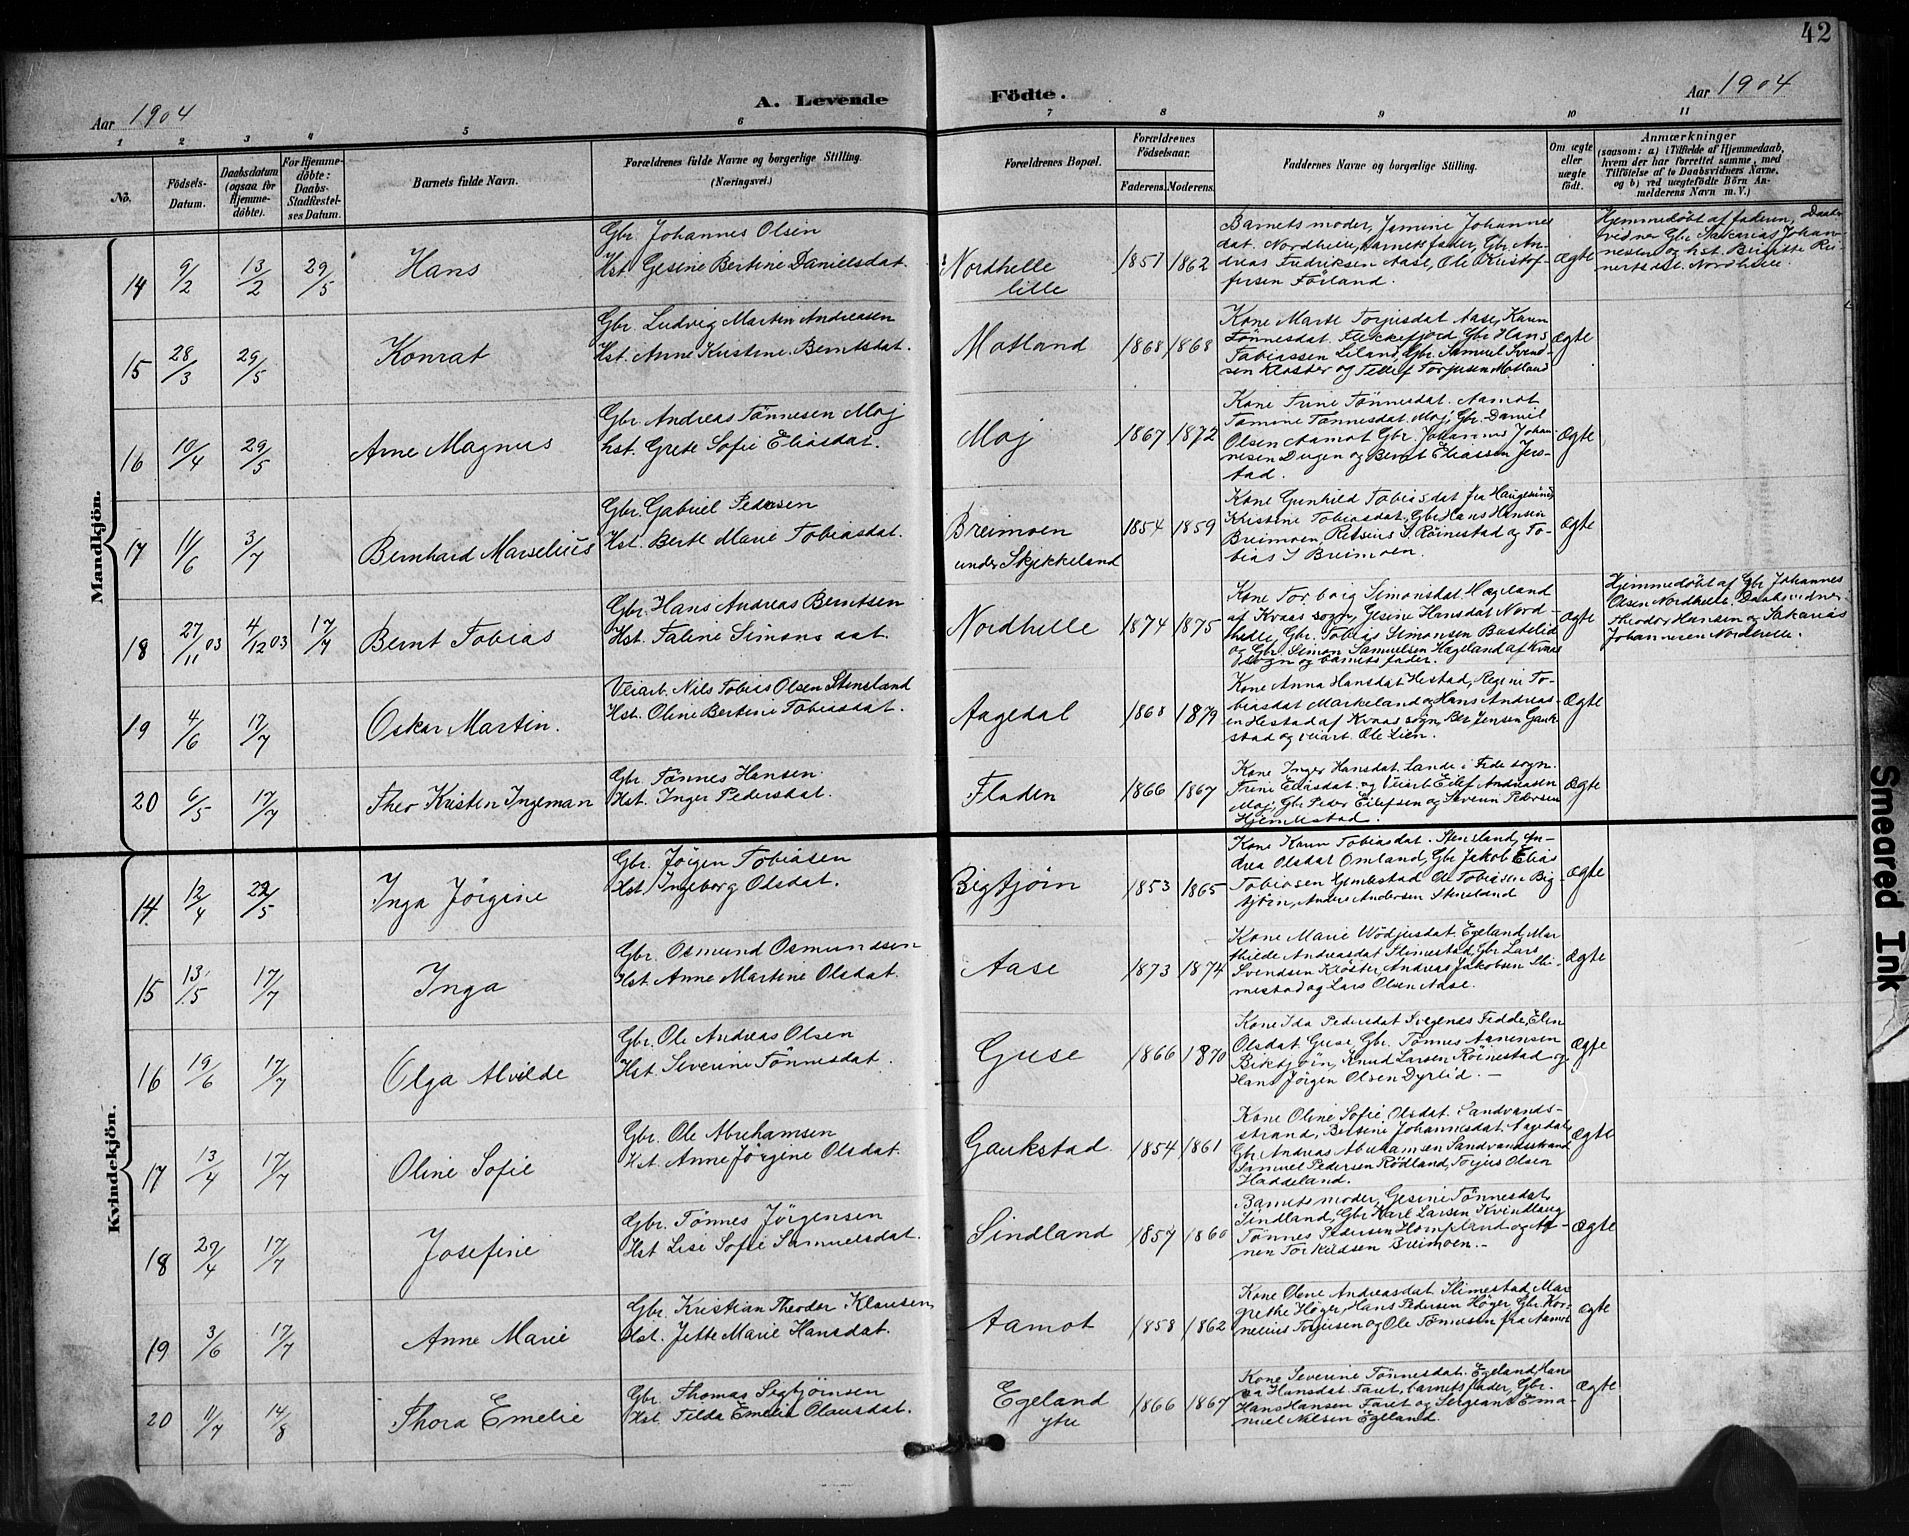 42
Aar 1904
A. Levende Födte.
Aar 1904
1 2 3 4 5 6 7 8 9 10 11
No.
Födsels-
Datum.
Daabsdatum
(ogsaa for
Hjemme-
döbte).
For Hjemme-
döbte:
Daabs-
Stadfæstel-
ses Datum.
Barnets fulde Navn.
Forældrenes fulde Navne og borgerlige Stilling.
(Næringsvei.)
Forældrenes Bopæl.
Forældrenes
Födselsaar.
Faderens. Moderens.
Faddernes Navne og borgerlige Stilling.
Om ægte
eller
uægte
födt.
Anmærkninger
(saasom: a) i Tilfælde af Hjemmedaab,
hvem der har forrettet samme, med
Tilföielse af to Daabsvidners Navne,
og b) ved uægtefödte Börn An-
melderens Navn m. V.)
Mandkjön.
14 9/2 13/2 29/5 Hans
Gbr. Johannes Olsen
Hst. Gesine Bertine Danielsdat.
Nordhelle
lille
1851 1862
Barnets moder, Jamine Johannes
dat. Nordhelle, barnets fader, Gbr. An-
dreas Fredriksen Aase, Ole Kristof-
fersen Förland.
Ægte
Hjemmedöbt af faderen, Daabs
vidner Gbr Sakarias Johan-
nesen og hst. Birgitte Rei-
nertsdat. Nordhelle.
15 28/3 29/5 Konrat
Gbr. Ludvig Martin Andreasen
Hst. Anne Kristine Berntsdat.
Motland
1868 1868
Kone Marte Torjusdat Aase, Karen
Tönnesdat. Flekkefjord Gbr Hans
Tobiassen Liland, Gbr. Samuel Svend-
sen Kloster og Tellef Torjusen Motland
Ægte
16 10/4 29/5 Arne Magnus
Gbr. Andreas Tönnesen Moj
hst. Grete Sofie Eliasdat.
Moj
1867 1872
Kone Trine Tönnesdat. Aamot
Tomine Tönnesdat Moj, Gbr. Daniel
Olsen Aamot Gbr. Johannes Johan-
nesen Dugen og Bernt Eliassen Jer-
stad.
Ægte
17 11/6 3/7 Bernhard Marselius
Gbr. Gabriel Pedersen
Hst. Berte Marie Tobiasdat.
Breimoen
under Skjekkeland
1854 1859
Kone Gunhild Tobiasdat fra Haugesund
Kristine Tobiasdat, Gbr Hans Hansen
Breimoen, Retsius S. Röinestad og To-
bias S Breimoen.
Ægte
18 27/11 03 4/12 03 17/7 Bernt Tobias
Gbr. Hans Andreas Berntsen
Hst. Taline Simonsdat.
Nordhelle
1874 1875
Kone Torborg Simonsdat Hægeland
af Kvaas sogn, Gesine Hansdat Nord-
helle, Gbr. Tobias Simonsen Bustelid
og Gbr. Simon Samuelsen Hægeland af Kvaas
sogn og barnets fader.
Ægte
Hjemmedöbt af Gbr Johannes
Olsen Nordhelle. Daabsvidner:
Theodor Hansen og Sakarias
Johannesen Nordhelle.
19 4/6 17/7 Oskar Martin.
Veiarb. Nils Tobias Olsen Stensland
Hst. Oline Bertine Tobiasdat.
Aagedal
1868 1879
Kone Anna Hansdat Hestad, Regine To-
biasdat Markeland og Hans Andreas-
en Hestad af Kvaas sogn, Ber Jensen Gauk-
stad og veiarb. Ole Lien.
Ægte
20 6/5 17/7 Theo Kristen Ingeman
Gbr. Tönnes Hansen.
Hst. Inger Pedersdat.
Fladen
1866 1867
Kone Inger Hansdat. Lande i Fede sogn.
Trine Eliasdat. og veiarb Eilef Andreasen
Moj, Gbr Peder Eilefsen og Severin Pedersen
Hjemmestad.
Ægte
Kvindekjön.
14. 12/4 22/5 Inga Jörgine
Gbr. Jörgen Tobiasen
Hst. Ingeborg Olsdat.
Bigtjörn
1853 1865
Kone Karen Tobiasdat. Stensland, An-
drea Olsdat Omland, Gbr Jakob Elias
Tobiasen Gimlestad Ole Tobiasen Big-
tjörn, Anders Andersen Stensland
Ægte
15 13/5 17/7 Inga
Gbr. Osmund Osmundsen
Hst. Anne Martine Olsdat.
Aase
1873 1874
Kone Marie Ve̶djusdat. Egeland, Mat
hilde Andreasdat Slimestad, Gbr Lars
Svendsen Kloster, Andreas Jakobsen Sli-
mestad og Lars Olsen Aase.
Ægte
16 19/6 17/7 Olga Alvilde
Gbr. Ole Andreas Olsen
Hst. Severine Tönnesdat.
Guse
1866 1870
Kone Ida Pedersdat Svegenes Fedde, Elen
Olsdat Guse, Gbr. Tönnes Aanensen
Biktjörn, Knud Larsen Röinestad og
Hans Jörgen Olsen Dyrlid. —
Ægte
17 13/4 17/7 Oline Sofie
Gbr. Ole Abrahamsen
Hst. Anne Jörgene Olsdat.
Gaukstad.
1854 1861
Kone Oline Sofie Olsdat. Sandvands-
strand, Bertine Johannesdat, Aagedal
Gbr Andreas Abrahamsen Sandvandsstrand
Samuel Pedersen Rödland, Torjus Olsen
Haddeland.
Ægte
18 27/4 17/7 Josefine
Gbr. Tönnes Jörgensen
Hst Lise Sofie Samuelsdat.
Sindland
1857 1860
Barnets moder, Gesine Tönnesdat,
Sindland, Gbr Karl Larsen Kvindlaug
Tönnes Pedersen Hompland og Aa-
nen Torkildsen Breimoen. —
Ægte
19 3/6 17/7 Anne Marie
Gbr Kristian Theodor Klausen
Hst. Jette Marie Hansdat.
Aamot
1858 1862
Kone Oline Andreasdat Slimestad, Mar
grethe Höyer, Hans Pedersen Höyer Gbr Kor-
nelius Torjusen og Ole Tönnesen fra Aamot
Ægte
20 11/7 14/8 Thora Emelie
Gbr Thomas Sigbjörnsen
Hst. Tilda Emelie Olausdat.
Egeland
ytre
1866 1867
Kone Severine Tönnesdat. Egeland, Han-
na Hansdat. Faret, barnets fader, Gbr.
Hans Hansen Faret og Sergeant Ema-
nuel Nilsen Egeland.
Ægte
Smeared Ink